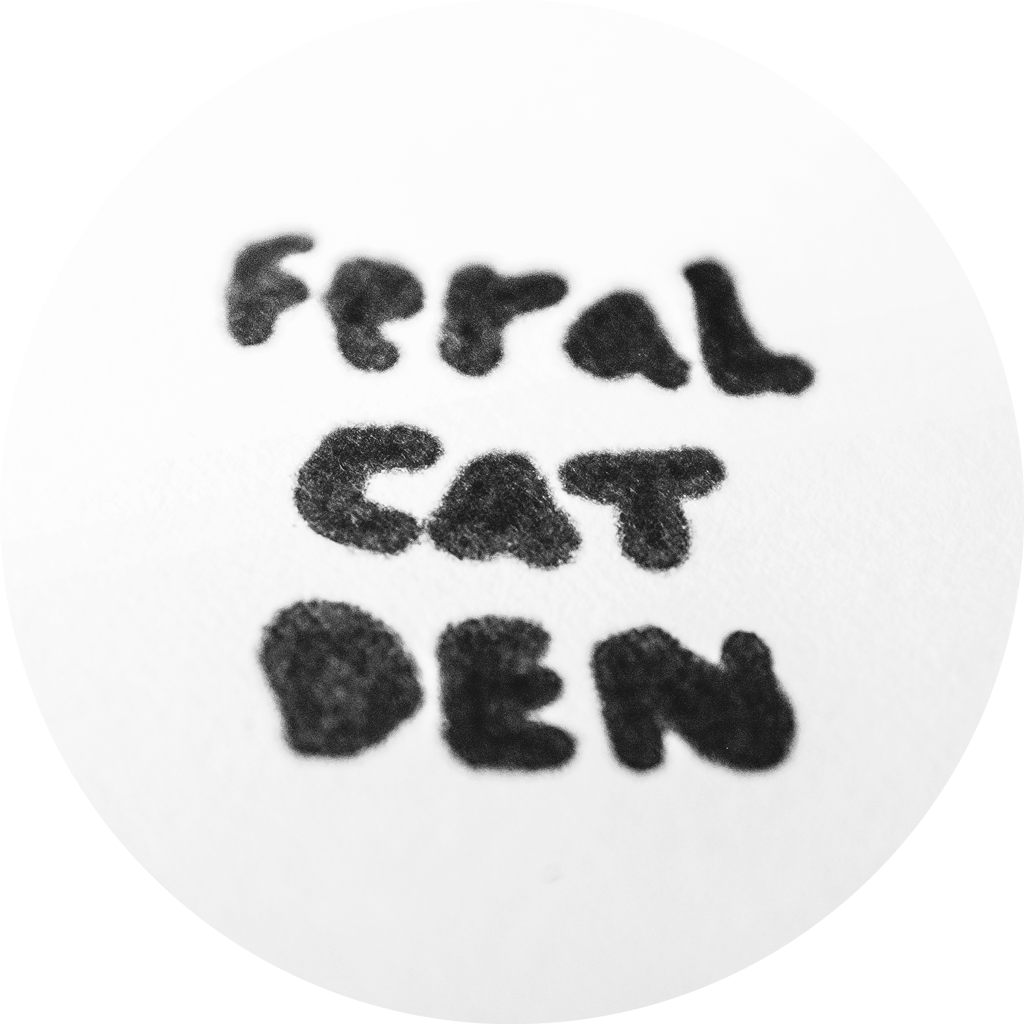 Feral
CAT
DEN